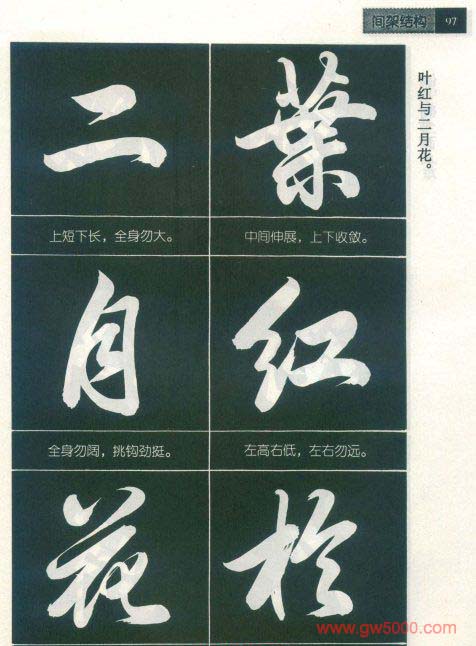 间架结构 97
叶红与二月花。
葉
中间伸展，上下收敛。
红
左高右低，左右勿远。
於
二
上短下长，全身勿大。
月
全身勿阔，挑钩劲挺。
花
www.gw5000.com